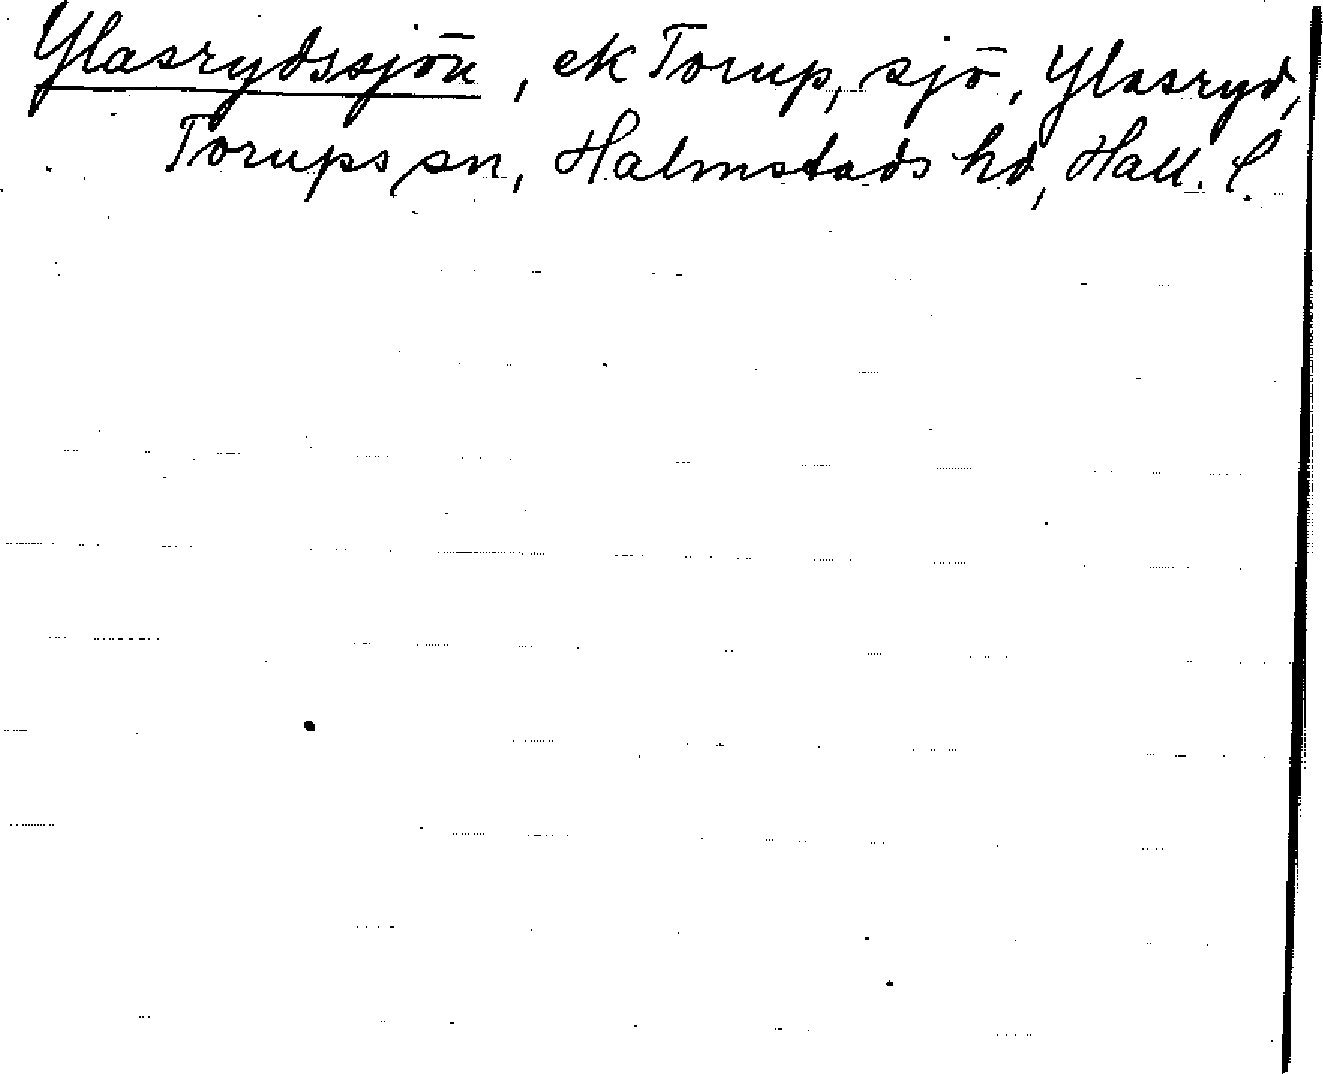 Glasrydssjön, ek Torup, sjö, Glasryd,
Torups sn, Halmstads hd, Hall. l.